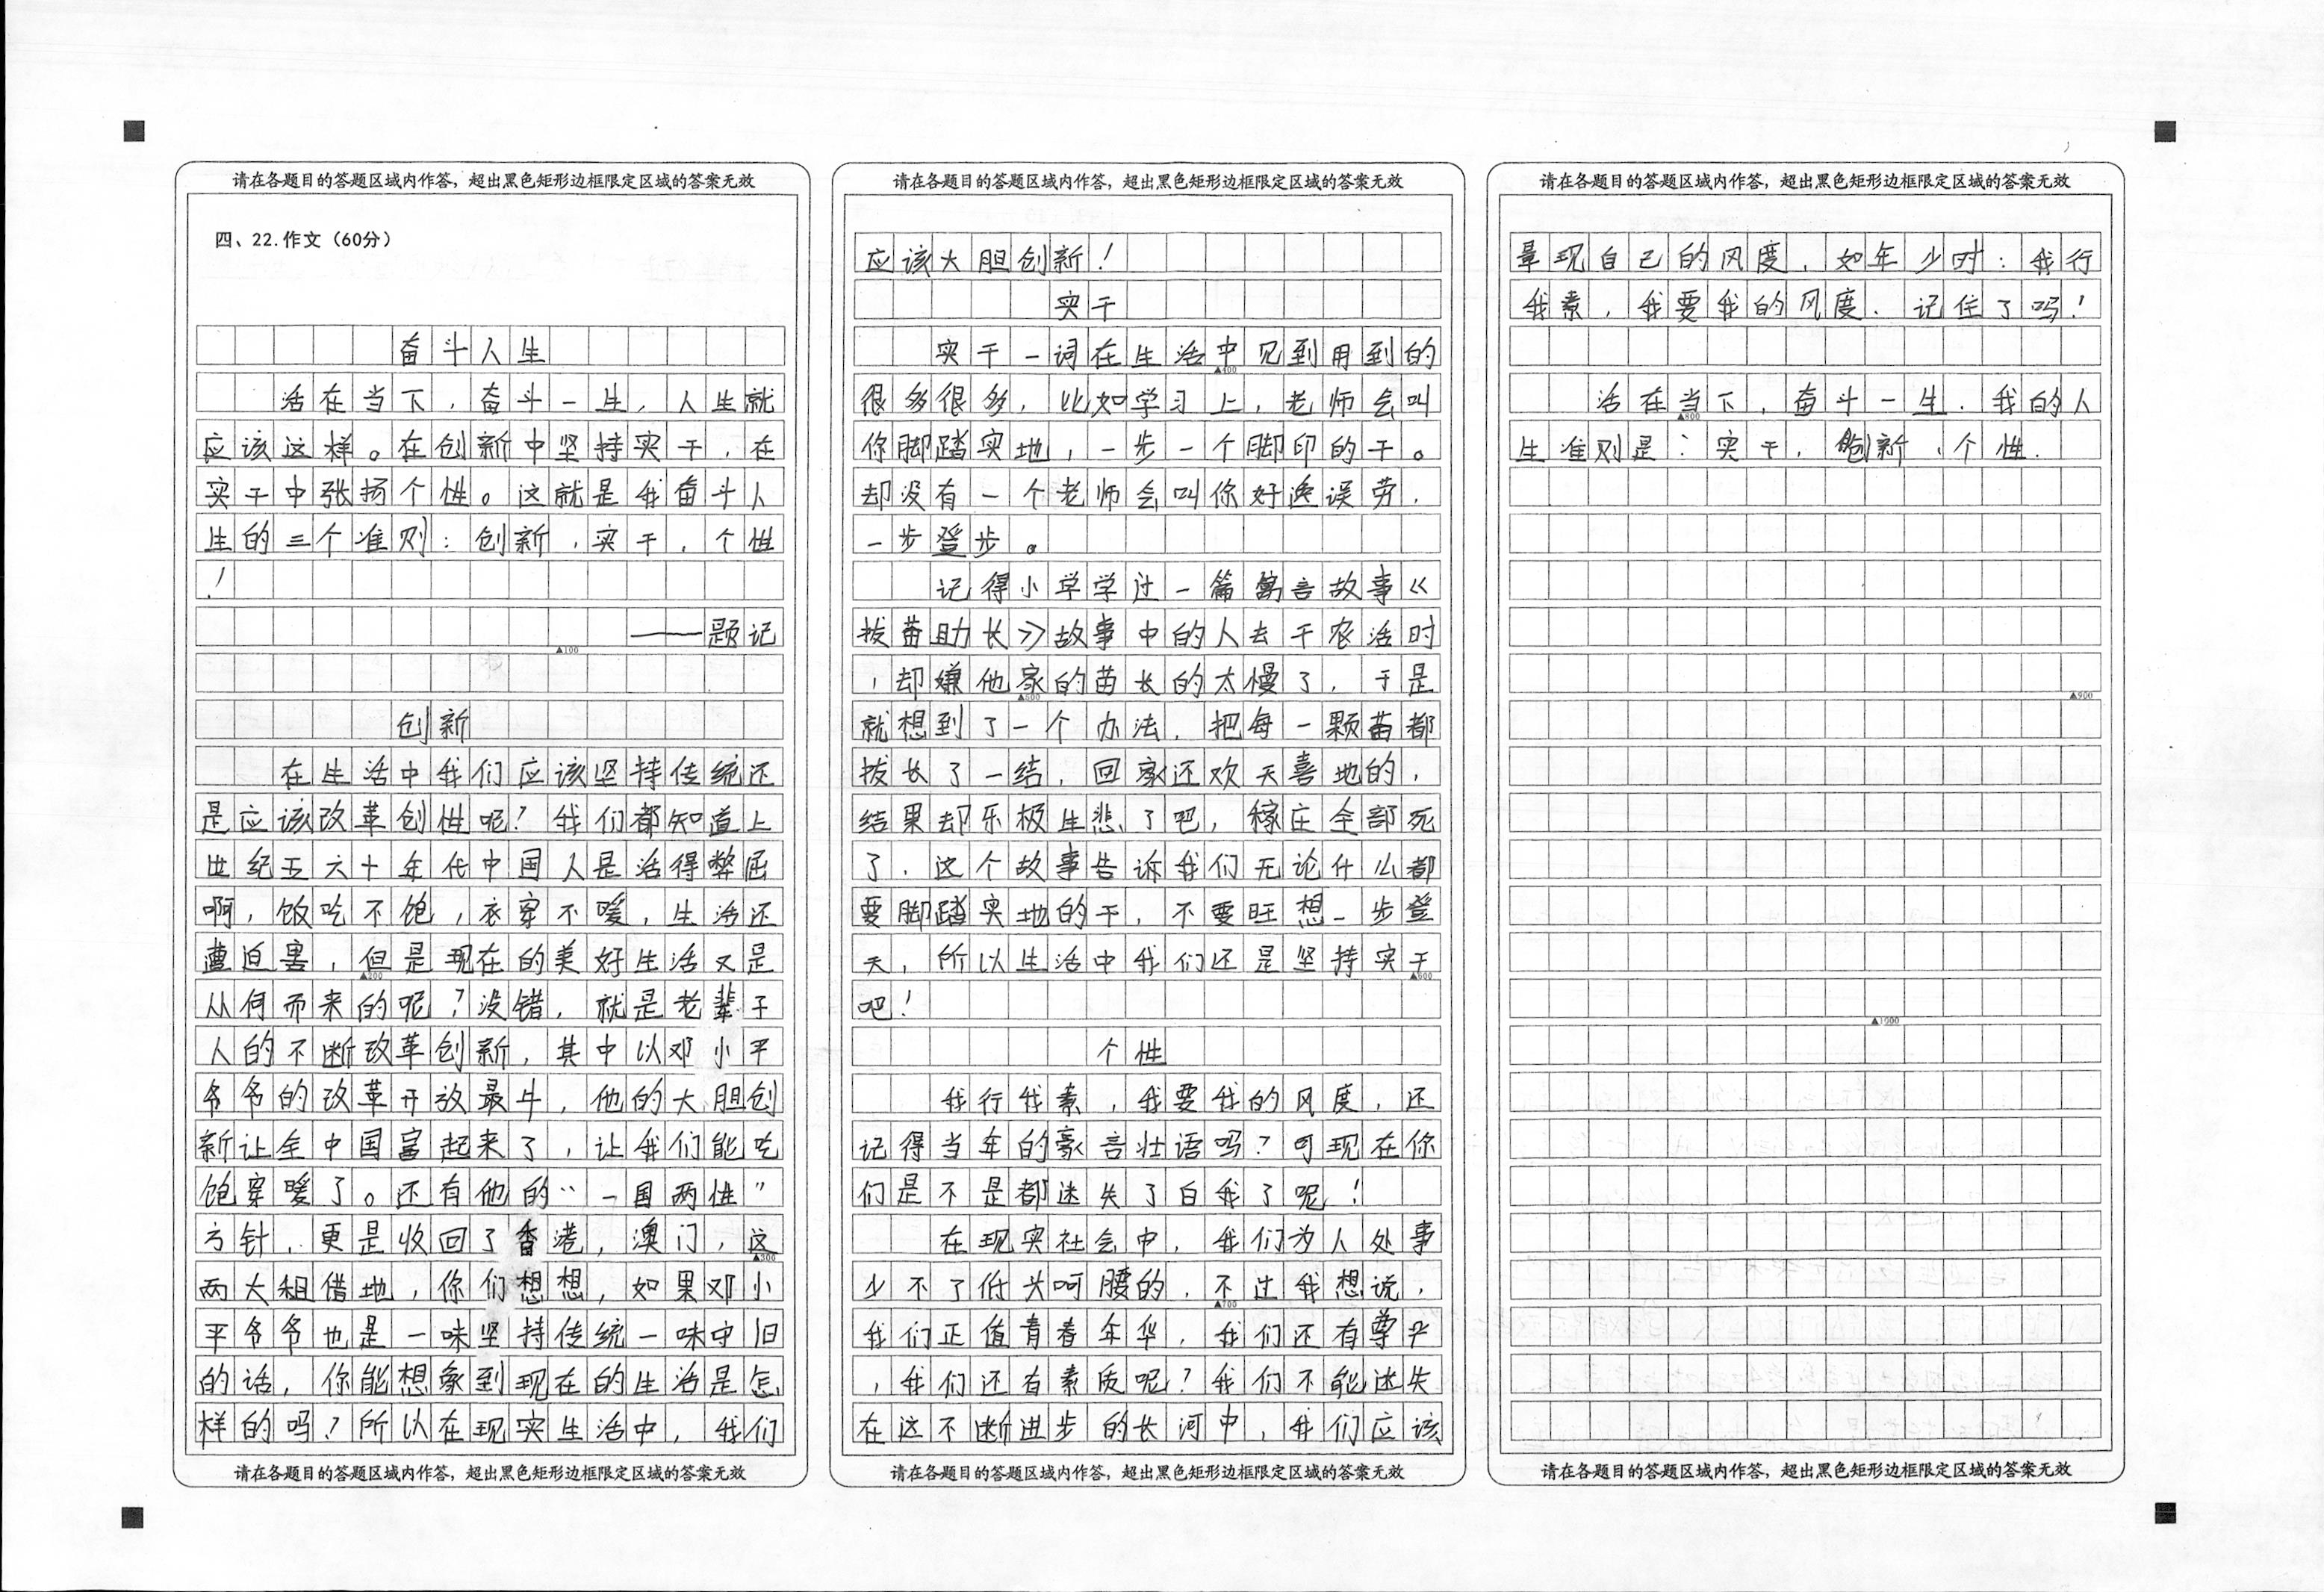 请在各题目的答题区域内作答，超出黑色矩形边框限定区域的答案无效
四、22.作文（60分）
奋斗人生
活在当下，奋斗一生，人生就
应该这样。在创新中坚持实干，在
实干中张扬个性。这就是我奋斗人
生的三个准则：创新，实干，个性
！
——题记
▲100
创新
在生活中我们应该坚持传统还
是应该改革创性呢？我们都知道上
世纪五六十年代中国人是活得弊屈
啊，饭吃不饱，衣穿不暖，生活还
遭迫害，但是现在的美好生活又是
▲200
从何而来的呢？没错，就是老辈子
人的不断改革创新，其中以邓小平
爷爷的改革开放最牛，他的大胆创
新让全中国富起来了，让我们能吃
饱穿暖了。还有他的“一国两性”
方针，更是收回了香港，澳门，这
▲300
两大租借地，你们想想，如果邓小
平爷爷也是一味坚持传统一味守旧
的话，你能想象到现在的生活是怎
样的吗？所以在现实生活中，我们
请在各题目的答题区域内作答，超出黑色矩形边框限定区域的答案无效
请在各题目的答题区域内作答，超出黑色矩形边框限定区域的答案无效
应该大胆创新！
实干
实干一词在生活中见到用到的
▲400
很多很多，比如学习上，老师会叫
你脚踏实地，一步一个脚印的干。
却没有一个老师会叫你好逸误劳，
一步登步。
记得小学学过一篇寓言故事《
拔苗助长》故事中的人去干农活时
，却嫌他家的苗长的太慢了，于是
▲500
就想到了一个办法，把每一颗苗都
拔长了一结，回家还欢天喜地的，
结果却乐极生悲了吧，稼庄全部死
了．这个故事告诉我们无论什么都
要脚踏实地的干，不要旺想一步登
天，所以生活中我们还是坚持实干
▲600
吧！
个性
我行我素，我要我的风度，还
记得当年的豪言壮语吗？可现在你
们是不是都迷失了自我了呢！
在现实社会中，我们为人处事
少不了低头呵腰的，不过我想说，
▲700
我们正值青春年华，我们还有尊严
，我们还有素质呢？我们不能迷失
在这不断进步的长河中，我们应该
请在各题目的答题区域内作答，超出黑色矩形边框限定区域的答案无效
请在各题目的答题区域内作答，超出黑色矩形边框限定区域的答案无效
现自己的风度，如年少时：我行
我素，我要我的风度．记住了吗！
活在当下，奋斗一生．我的人
▲800
生准则是：实干，创新，个性．
▲900
▲1000
请在各题目的答题区域内作答，超出黑色矩形边框限定区域的答案无效